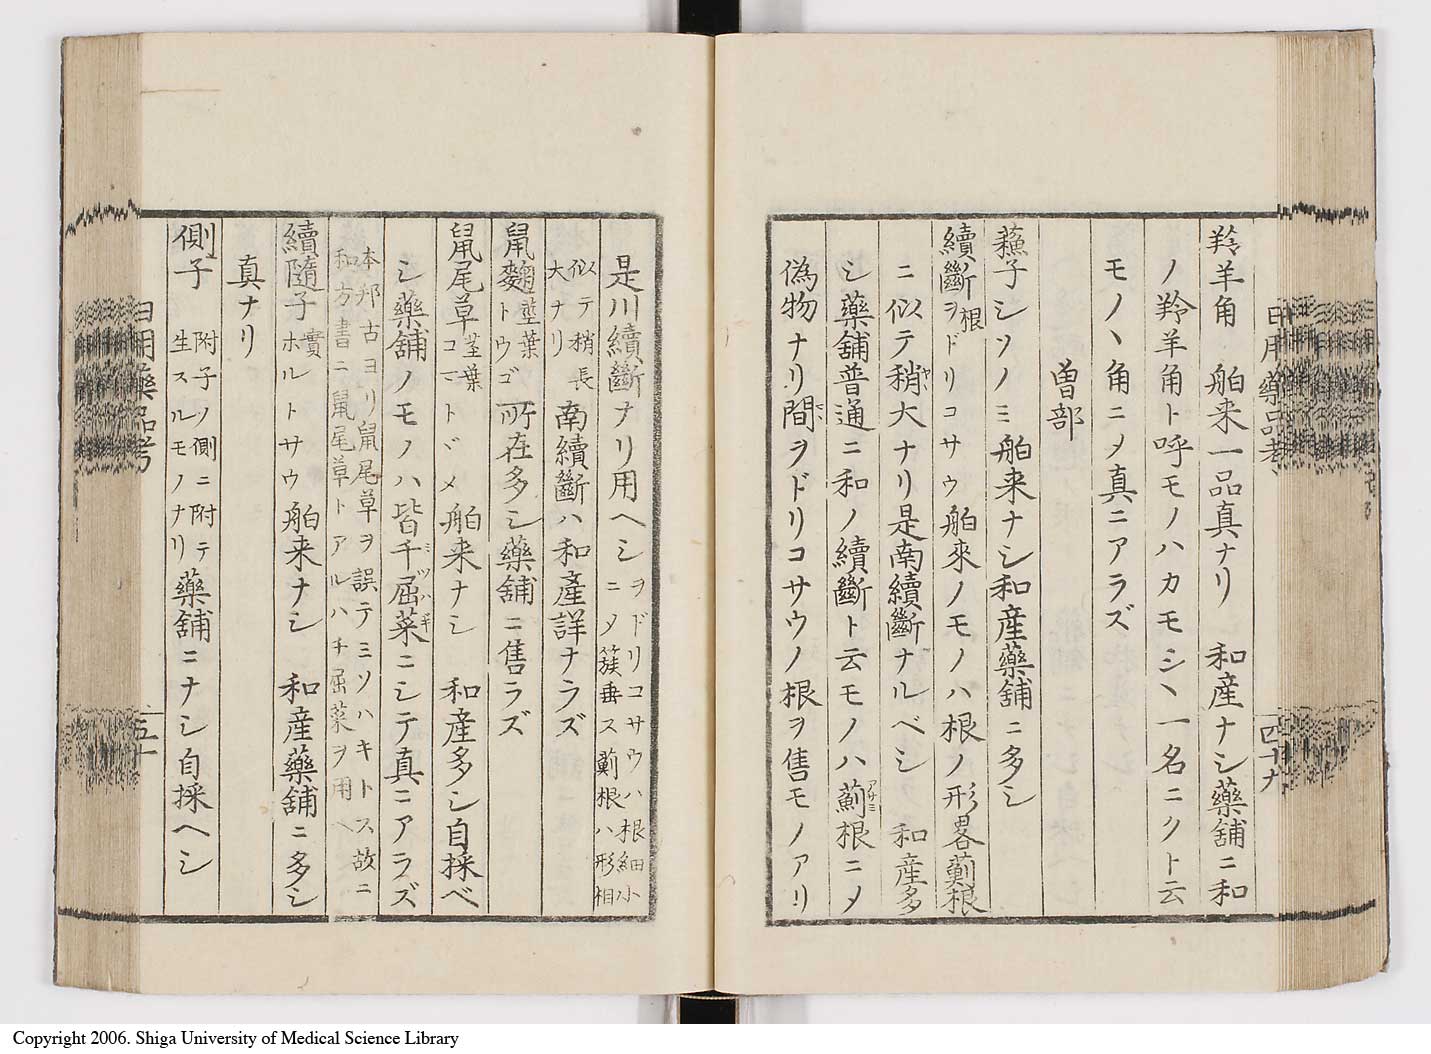 日用藥品考
四十九
羚羊角 舶来一品真ナリ 和産ナシ藥舗ニ和
ノ羚羊角ト呼モノハカモシヽ一名ニクト云
モノヽ角ニメ真ニアラズ
曽部
蘓子シソノミ 舶来ナシ和産藥舗ニ多シ
續斷根ヲドリコサウ 舶來ノモノハ根ノ形畧薊根
ニ似テ稍大ナリ是南續斷ナルベシ 和産多
シ藥舗普通ニ和ノ續斷ト云モノハ薊根ニメ
アサミ
偽物ナリ間ヲドリコサウノ根ヲ售モノアリ
是川續斷ナリ用ヘシ
ヲドリコサウハ根細小
ニメ簇垂ス薊根ハ形相
似テ稍長
大ナリ
南續斷ハ和産詳ナラズ
鼠麴
莖葉
トウゴ
所在多シ藥舗ニ售ラズ
鼠尾草
莖葉
コマトドメ
舶来ナシ 和産多シ自採ベ
シ藥舗ノモノハ皆千屈菜ニシテ真ニアラズ
ミソハギ
本邦古ヨリ鼠尾草ヲ誤テミソハキトス故ニ
和方書ニ鼠尾草トアルハ千屈菜ヲ用ヘ
續隨子
實
ホルトサウ
舶来ナシ 和産藥舗ニ多シ
真ナリ
側子
附子ノ側ニ附テ
生スルモノナリ
藥舗ニナシ自採ヘシ
日用藥品考
五十
Copyright 2006. Shiga University of Medical Science Library